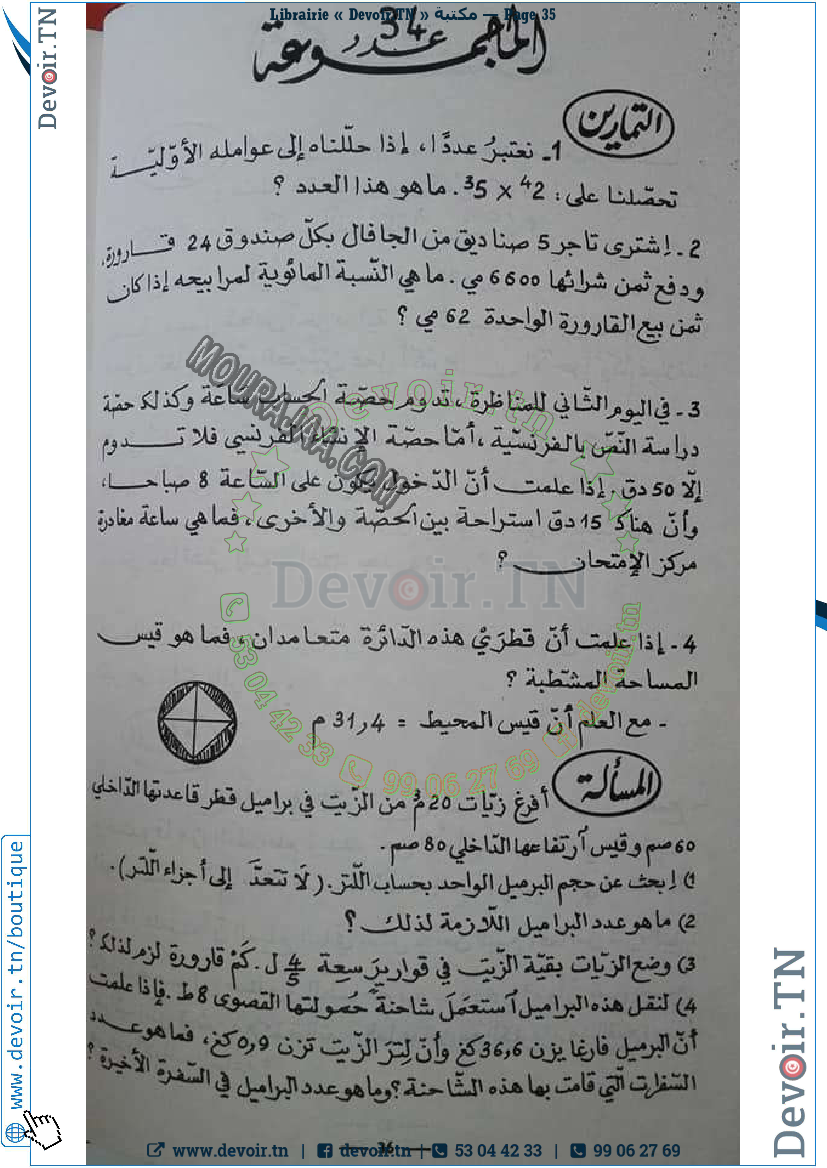 Librairie « Devoir.TN » مكتبة — Page 35
Devoir.TN
المجموعة عدد 34
التمارين
1- نعتبر عددًا، إذا حلّلناه إلى عوامله الأوّليّة
تحصّلنا على: 2⁴ × 5³. ما هو هذا العدد ؟
2- إشترى تاجر 5 صناديق من الجافال بكلّ صندوق 24 قارورة،
ودفع ثمن شرائها 6600 مي. ما هي النّسبة المائوية لمرابيحه إذا كان
ثمن بيع القارورة الواحدة 62 مي ؟
MOURAJAA.COM
Devoir.tn
3- في اليوم الثّاني للمناظرة، تدوم حصّة الحساب ساعة وكذلك حصّة
دراسة النّصّ بالفرنسيّة، أمّا حصّة الإنشاء الفرنسي فلا تدوم
إلّا 50 دق. إذا علمت أنّ الدّخول يكون على السّاعة 8 صباحا،
وأنّ هناك 15 دق استراحة بين الحصّة والأخرى، فما هي ساعة مغادرة
مركز الإمتحان ؟
Devoir.TN
4- إذا علمت أنّ قطريْ هذه الدّائرة متعامدان، فما هو قيس
المساحة المشطّبة ؟
- مع العلم أنّ قيس المحيط = 31,4 م
53 04 42 33 99 06 27 69 devoir.tn
المسألة
أفرغ زيّات 20 م³ من الزّيت في براميل قطر قاعدتها الدّاخلي
60 صم وقيس ارتفاعها الدّاخلي 80 صم.
1) إبحث عن حجم البرميل الواحد بحساب اللّتر. (لا تتعدَّ إلى أجزاء اللّتر).
2) ما هو عدد البراميل اللّازمة لذلك ؟
3) وضع الزّيات بقيّة الزّيت في قوارير سعة 4/5 ل. كمْ قارورة لزم لذلك ؟
4) لنقل هذه البراميل استعمَلَ شاحنة حُمولتها القصوى 8 ط. فإذا علمت
أنّ البرميل فارغا يزن 36,6 كغ وأنّ لترَ الزّيت تزن 0,9 كغ، فما هو عدد
السّفرات الّتي قامت بها هذه الشّاحنة ؟ وما هو عدد البراميل في السّفرة الأخيرة ؟
36
www.devoir.tn/boutique
Devoir.TN
www.devoir.tn | devoir.tn | 53 04 42 33 | 99 06 27 69